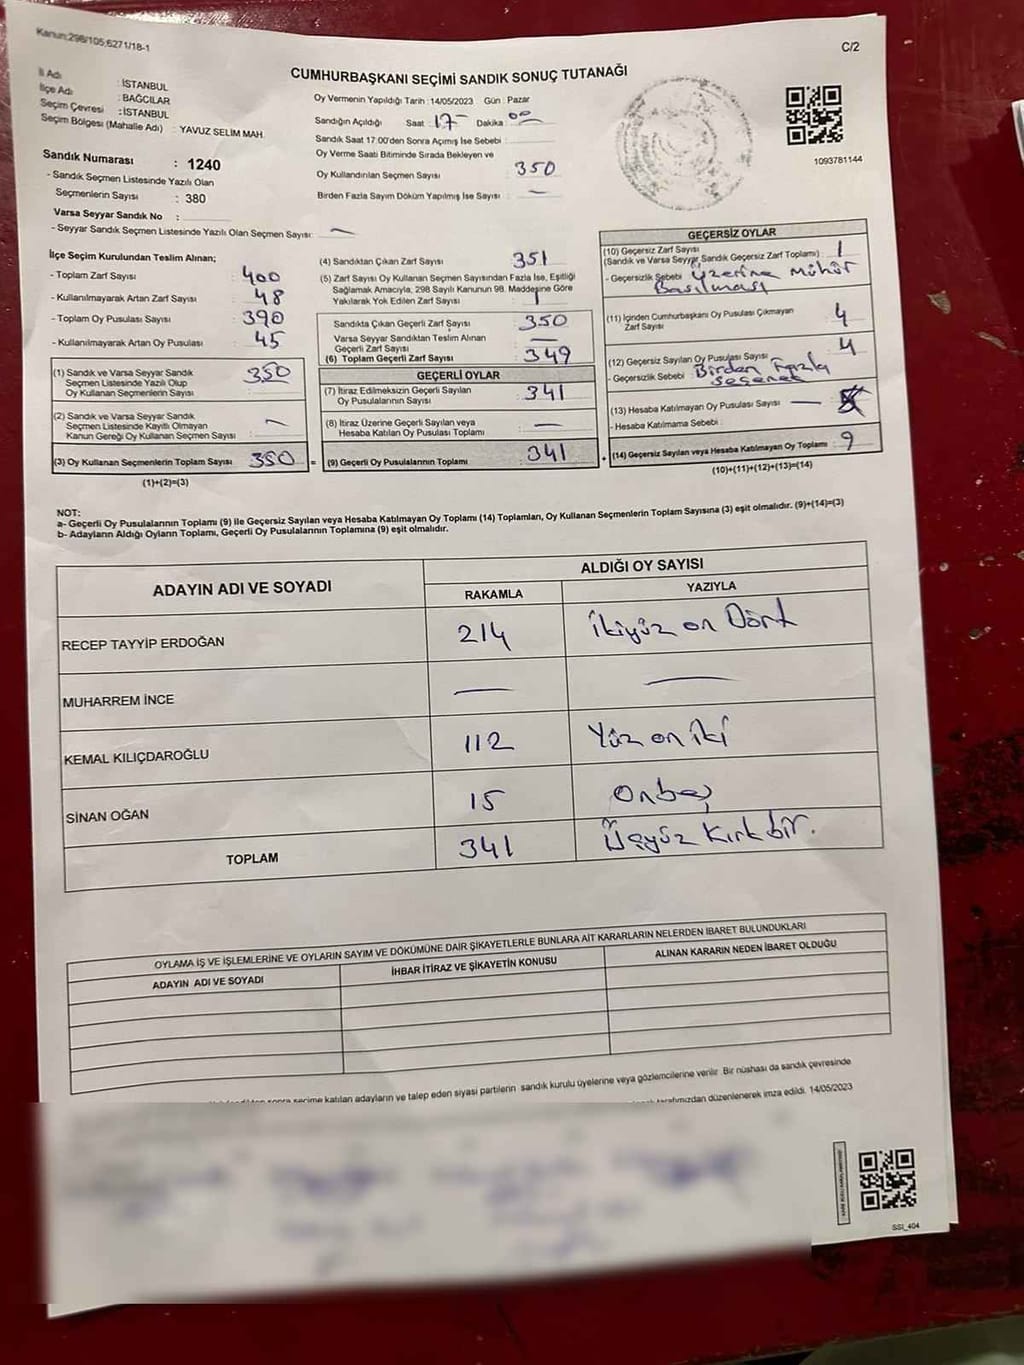 Kanun:298/105;6271/18-1
C/2
CUMHURBAŞKANI SEÇİMİ SANDIK SONUÇ TUTANAĞI
İl Adı : İSTANBUL
İlçe Adı : BAĞCILAR
Seçim Çevresi : İSTANBUL
Seçim Bölgesi (Mahalle Adı) : YAVUZ SELİM MAH.
Sandık Numarası : 1240
- Sandık Seçmen Listesinde Yazılı Olan
Seçmenlerin Sayısı : 380
Varsa Seyyar Sandık No :
- Seyyar Sandık Seçmen Listesinde Yazılı Olan Seçmen Sayısı: —
Oy Vermenin Yapıldığı Tarih :14/05/2023 Gün : Pazar
Sandığın Açıldığı Saat : 17 Dakika : 00
Sandık Saat 17:00'den Sonra Açımış İse Sebebi :
Oy Verme Saati Bitiminde Sırada Bekleyen ve
Oy Kullandırılan Seçmen Sayısı : 350
Birden Fazla Sayım Döküm Yapılmış İse Sayısı : —
1093781144
İlçe Seçim Kurulundan Teslim Alınan;
- Toplam Zarf Sayısı : 400
- Kullanılmayarak Artan Zarf Sayısı : 48
- Toplam Oy Pusulası Sayısı : 390
- Kullanılmayarak Artan Oy Pusulası : 45
(1) Sandık ve Varsa Seyyar Sandık
Seçmen Listesinde Yazılı Olup
Oy Kullanan Seçmenlerin Sayısı : 350
(2) Sandık ve Varsa Seyyar Sandık
Seçmen Listesinde Kayıtlı Olmayan
Kanun Gereği Oy Kullanan Seçmen Sayısı : —
(3) Oy Kullanan Seçmenlerin Toplam Sayısı : 350
(1)+(2)=(3)
(4) Sandıktan Çıkan Zarf Sayısı : 351
(5) Zarf Sayısı Oy Kullanan Seçmen Sayısından Fazla İse, Eşitliği
Sağlamak Amacıyla, 298 Sayılı Kanunun 98. Maddesine Göre
Yakılarak Yok Edilen Zarf Sayısı : 1
Sandıkta Çıkan Geçerli Zarf Sayısı : 350
Varsa Seyyar Sandıktan Teslim Alınan
Geçerli Zarf Sayısı : —
(6) Toplam Geçerli Zarf Sayısı : 349
GEÇERLİ OYLAR
(7) İtiraz Edilmeksizin Geçerli Sayılan
Oy Pusulalarının Sayısı : 341
(8) İtiraz Üzerine Geçerli Sayılan veya
Hesaba Katılan Oy Pusulası Toplamı : —
(9) Geçerli Oy Pusulalarının Toplamı : 341
GEÇERSİZ OYLAR
(10) Geçersiz Zarf Sayısı : 1
(Sandık ve Varsa Seyyar Sandık Geçersiz Zarf Toplamı)
- Geçersizlik Sebebi : Üzerine Mühür
Basılması
(11) İçinden Cumhurbaşkanı Oy Pusulası Çıkmayan
Zarf Sayısı : 4
(12) Geçersiz Sayılan Oy Pusulası Sayısı : 4
- Geçersizlik Sebebi : Birden Fazla
(13) Hesaba Katılmayan Oy Pusulası Sayısı —
- Hesaba Katılmama Sebebi :
(14) Geçersiz Sayılan veya Hesaba Katılmayan Oy Toplamı : 9
(10)+(11)+(12)+(13)=(14)
NOT:
a- Geçerli Oy Pusulalarının Toplamı (9) ile Geçersiz Sayılan veya Hesaba Katılmayan Oy Toplamı (14) Toplamları, Oy Kullanan Seçmenlerin Toplam Sayısına (3) eşit olmalıdır. (9)+(14)=(3)
b- Adayların Aldığı Oyların Toplamı, Geçerli Oy Pusulalarının Toplamına (9) eşit olmalıdır.
ADAYIN ADI VE SOYADI ALDIĞI OY SAYISI
RAKAMLA YAZIYLA
RECEP TAYYİP ERDOĞAN 214 İkiyüz on Dört
MUHARREM İNCE — —
KEMAL KILIÇDAROĞLU 112 Yüz on iki
SİNAN OĞAN 15 Onbeş
TOPLAM 341 Üçyüz Kırk bir.
OYLAMA İŞ VE İŞLEMLERİNE VE OYLARIN SAYIM VE DÖKÜMÜNE DAİR ŞİKAYETLERLE BUNLARA AİT KARARLARIN NELERDEN İBARET BULUNDUKLARI
ADAYIN ADI VE SOYADI İHBAR İTİRAZ VE ŞİKAYETİN KONUSU ALINAN KARARIN NEDEN İBARET OLDUĞU
sonra seçime katılan adayların ve talep eden siyasi partilerin sandık kurulu üyelerine veya gözlemcilerine verilir. Bir nüshası da sandık çevresinde
tarafımızdan düzenlenerek imza edildi. 14/05/2023
SSI_404